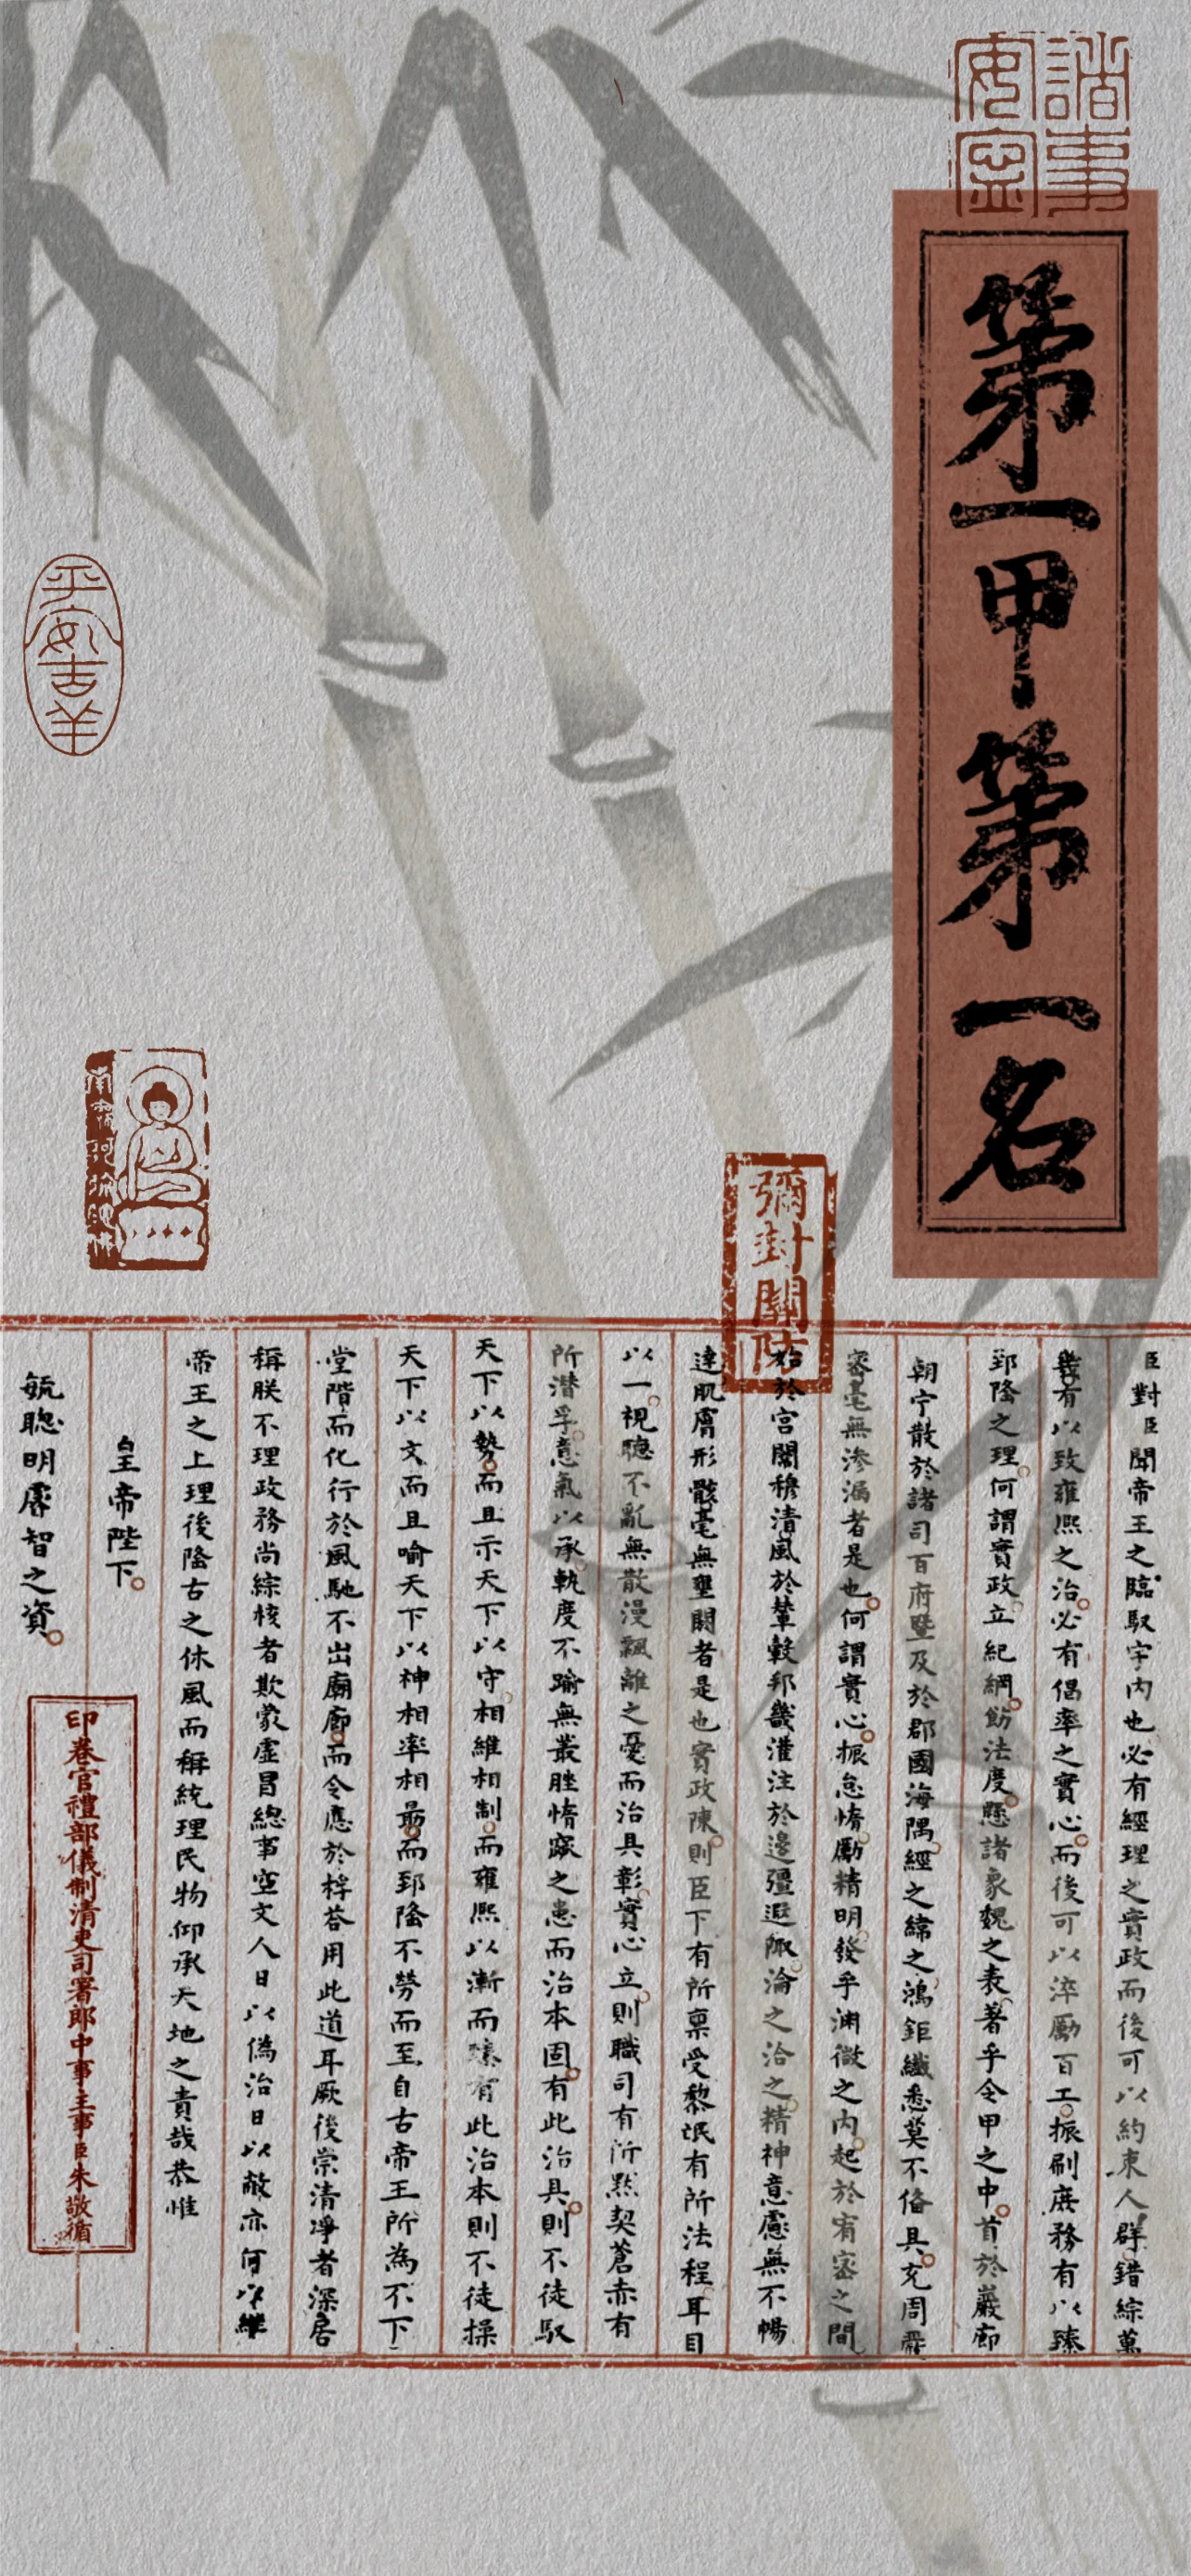 諸事
安寧
第一甲第一名
平安吉羊
南無阿弥陀佛
彌封關防
臣對臣聞帝王之臨馭宇内也必有經理之實政而後可以約束人群錯綜萬
幾有以致雍熙之治必有倡率之實心而後可以淬勵百工振刷庶務有以臻
郅隆之理何謂實政立紀綱飭法度懸諸象魏之表著乎令甲之中首於巖廊
朝宁散於諸司百府暨及於郡國海隅經之緯之鴻鉅纖悉莫不俻具充周嚴
密毫無滲漏者是也何謂實心振怠惰勵精明發乎渊微之内起於宥密之間
始於宫闈穆清風於輦轂邦畿灌注於邊疆遐陬淪之洽之精神意慮無不暢
達肌膚形骸毫無壅閼者是也實政陳則臣下有所禀受黎氓有所法程耳目
以一視聽不亂無散漫飄離之憂而治具彰實心立則職司有所默契蒼赤有
所潜孚意氣以承軌度不踰無叢脞惰窳之患而治本固有此治具則不徒馭
天下以勢而且示天下以守相維相制而雍熙以漸而臻有此治本則不徒操
天下以文而且喻天下以神相率相勗而郅隆不勞而至自古帝王所為不下
堂階而化行於風馳不出廟廊而令應於桴荅用此道耳厥後崇清凈者深居
稱朕不理政務尚綜核者欺蒙虚冒總事空文人日以偽治日以敝亦何以繼
帝王之上理後隆古之休風而稱統理民物仰承天地之責哉恭惟
皇帝陛下
毓聰明睿智之資
印卷官禮部儀制清吏司署郎中事主事臣朱敬循